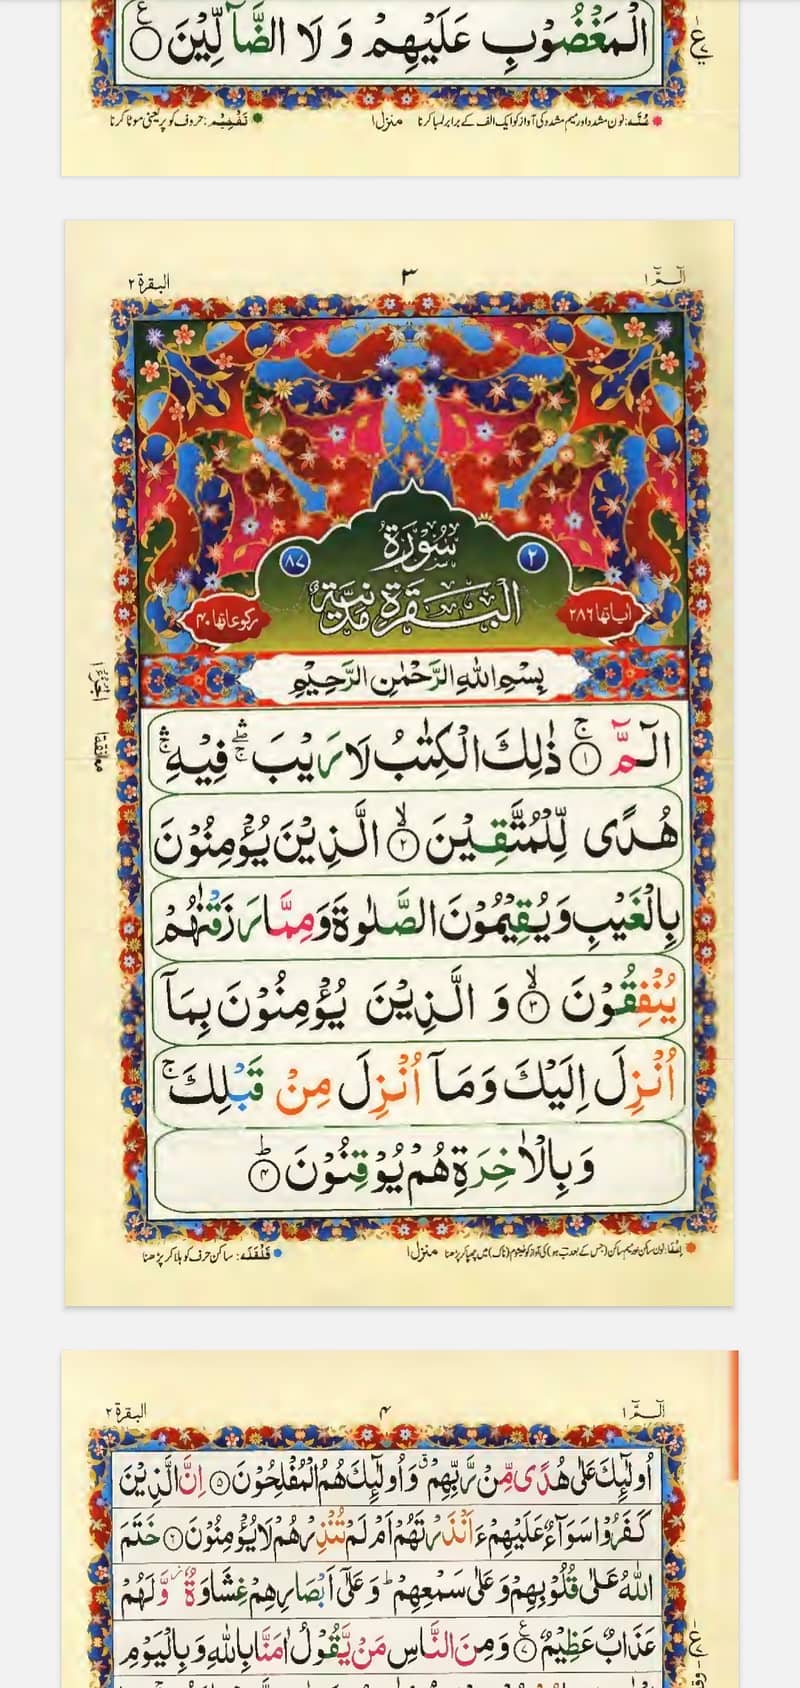 الْمَغْضُوْبِ عَلَيْهِمْ وَ لَا الضَّآلِّيْنَ
ع
غُنَّہ: نون مشدد اور میم مشدد کی آواز کو ایک الف کے برابر لمبا کرنا منزل۱ تَفْخِیْم: حروف کو پُر یعنی موٹا کرنا
الٓـمّٓ ۱ ۳ البقرة ۲
سُوْرَةُ
۲ ۸۷
الْبَقَرَةِ مَدَنِيَّةٌ
اٰیاتها ۲۸۶ رکوعاتها ۴۰
بِسْمِ اللهِ الرَّحْمٰنِ الرَّحِيْمِ
الٓـمّٓ ۚ﴿۱﴾ ذٰلِكَ الْكِتٰبُ لَا رَيْبَ ۛۚۖ فِيْهِ ۛۚ
هُدًى لِّلْمُتَّقِيْنَ ۙ﴿۲﴾ الَّذِيْنَ يُؤْمِنُوْنَ
بِالْغَيْبِ وَيُقِيْمُوْنَ الصَّلٰوةَ وَمِمَّا رَزَقْنٰهُمْ
يُنْفِقُوْنَ ۙ﴿۳﴾ وَ الَّذِيْنَ يُؤْمِنُوْنَ بِمَآ
اُنْزِلَ اِلَيْكَ وَمَآ اُنْزِلَ مِنْ قَبْلِكَ ۚ
وَبِالْاٰخِرَةِ هُمْ يُوْقِنُوْنَ ؕ﴿۴﴾
الجزء ۱
معانقة ۱
اِخفا: نون ساکن اور میم ساکن (جس کے بعد ب ہو) کی آواز کو خیشوم (ناک) میں چھپا کر پڑھنا منزل۱ قَلْقَلَہ: ساکن حرف کو ہلا کر پڑھنا
الٓـمّٓ ۱ ۴ البقرة ۲
اُولٰٓئِكَ عَلٰى هُدًى مِّنْ رَّبِّهِمْ ۗ وَاُولٰٓئِكَ هُمُ الْمُفْلِحُوْنَ ﴿۵﴾ اِنَّ الَّذِيْنَ
كَفَرُوْا سَوَآءٌ عَلَيْهِمْ ءَاَنْذَرْتَهُمْ اَمْ لَمْ تُنْذِرْهُمْ لَا يُؤْمِنُوْنَ ﴿۶﴾ خَتَمَ
اللهُ عَلٰى قُلُوْبِهِمْ وَعَلٰى سَمْعِهِمْ ؕ وَعَلٰٓى اَبْصَارِهِمْ غِشَاوَةٌ ؗ وَّلَهُمْ
عَذَابٌ عَظِيْمٌ ﴿۷﴾ وَمِنَ النَّاسِ مَنْ يَّقُوْلُ اٰمَنَّا بِاللهِ وَبِالْيَوْمِ